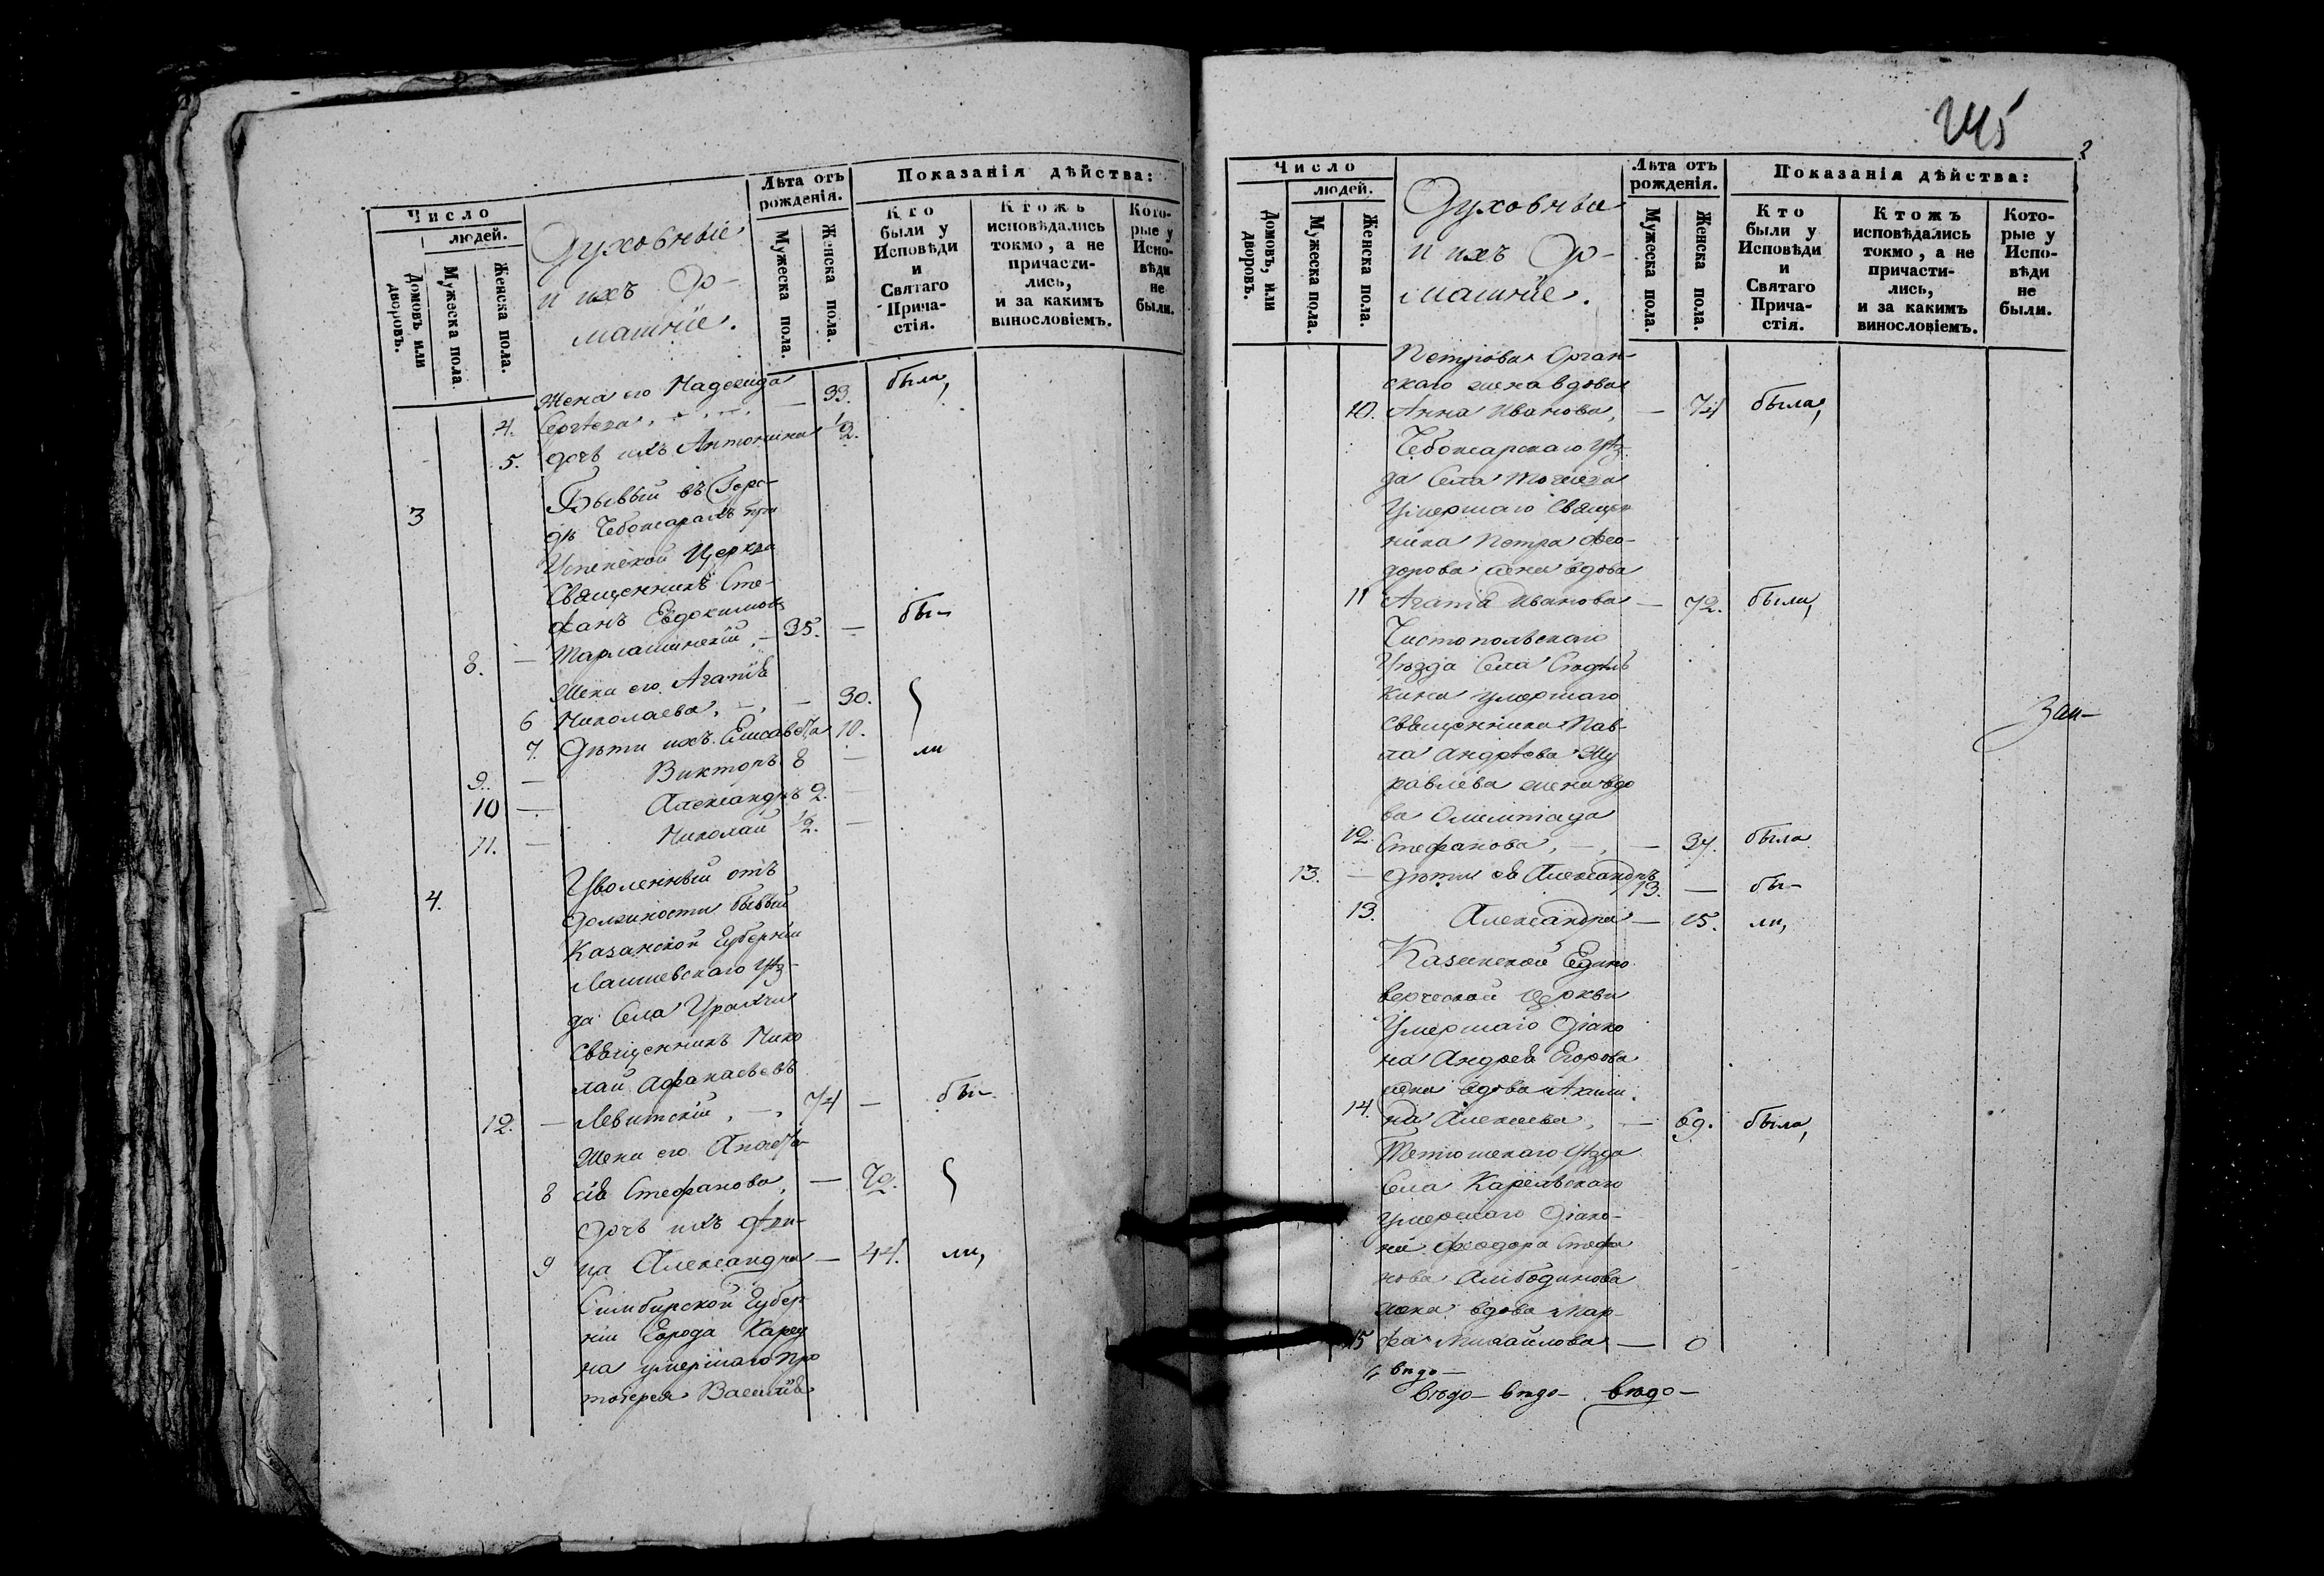 Число
людей.
Домовъ или дворовъ.
Мужеска пола
Женска пола.
Духовные
и ихъ До-
машніе.
Лѣта отъ рожденія.
Мужеска пола.
Женска пола.
Показанія дѣйства:
Кто были у Исповѣди и Святаго Прича-стія.
Ктожъ исповѣдались токмо, а не причасти-лись, и за какимъ винословіемъ.
Кото-рые у Испо-вѣди не были.
Жена его Надежда
4. Сергѣева, — 33. была,
5. дочь ихъ Антонина 1/2.
3 Бывый въ Горо-
дѣ Чебоксарахъ при
Успенской Церкви
Священникъ Сте-
фанъ Евдокимовъ
8. — Тарлашинскій, — 35. — бы-
Жена его Агапія
6 Николаева, — — 30.
7. Дѣти ихъ Елисавета 10.
9. — Викторъ 8 — ли
10 — Александръ 2. —
11. — Николай 1/2. —
4. Уволенный отъ
должности бывый
Казанской Губерніи
Лаишевскаго Уѣз-
да Села Урахчи
Священникъ Нико
лай Афанасьевъ
12. — Левитскій, — 74 — бы-
Жена его Анаста-
8 сія Стефанова, — 72.
Дочь ихъ дѣви-
9 ца Александра — 44. ли,
Симбирской Губер
ніи Города Карсу
на умершаго про
тоіерея Василія
245
2
Число
людей.
Домовъ, или дворовъ.
Мужеска пола.
Женска пола.
Духовные
и ихъ До-
машніе.
Лѣта отъ рожденія.
Мужеска пола.
Женска пола.
Показанія дѣйства:
Кто были у Исповѣди и Святаго Прича-стія.
Ктожъ исповѣдались токмо, а не причасти-лись, и за какимъ винословіемъ.
Кото-рые у Испо-вѣди не были.
Петрова Орган-
скаго жена вдова
10. Анна Иванова, — 74 была,
Чебоксарскаго Уѣз-
да Села
Умершаго Священ
ника Петра Фео-
дорова жена вдова
11 Агапія Иванова — 72. была,
Чистопольскаго
Уѣзда Села
кина умершаго
Священника Пав-
ла Андреева Жу
равлева жена вдо
ва Олимпіада
12. Стефанова, — — 37. была
13. — Дѣти ея Александръ 13. — бы-
13. Александра — 15. ли,
Казанской Едино
верческой церкви
Умершаго Діако
на Андрея Егорова
жена вдова Акили
14. на Алексеева, — 69. была,
Тетюшскаго Уѣзда
Села
умершаго Діако-
на Феодора Стефа
нова
жена вдова Мар-
15 фа Михайлова — 0
Заш-
вѣдо-
вѣдо- вѣдо- вѣдо-